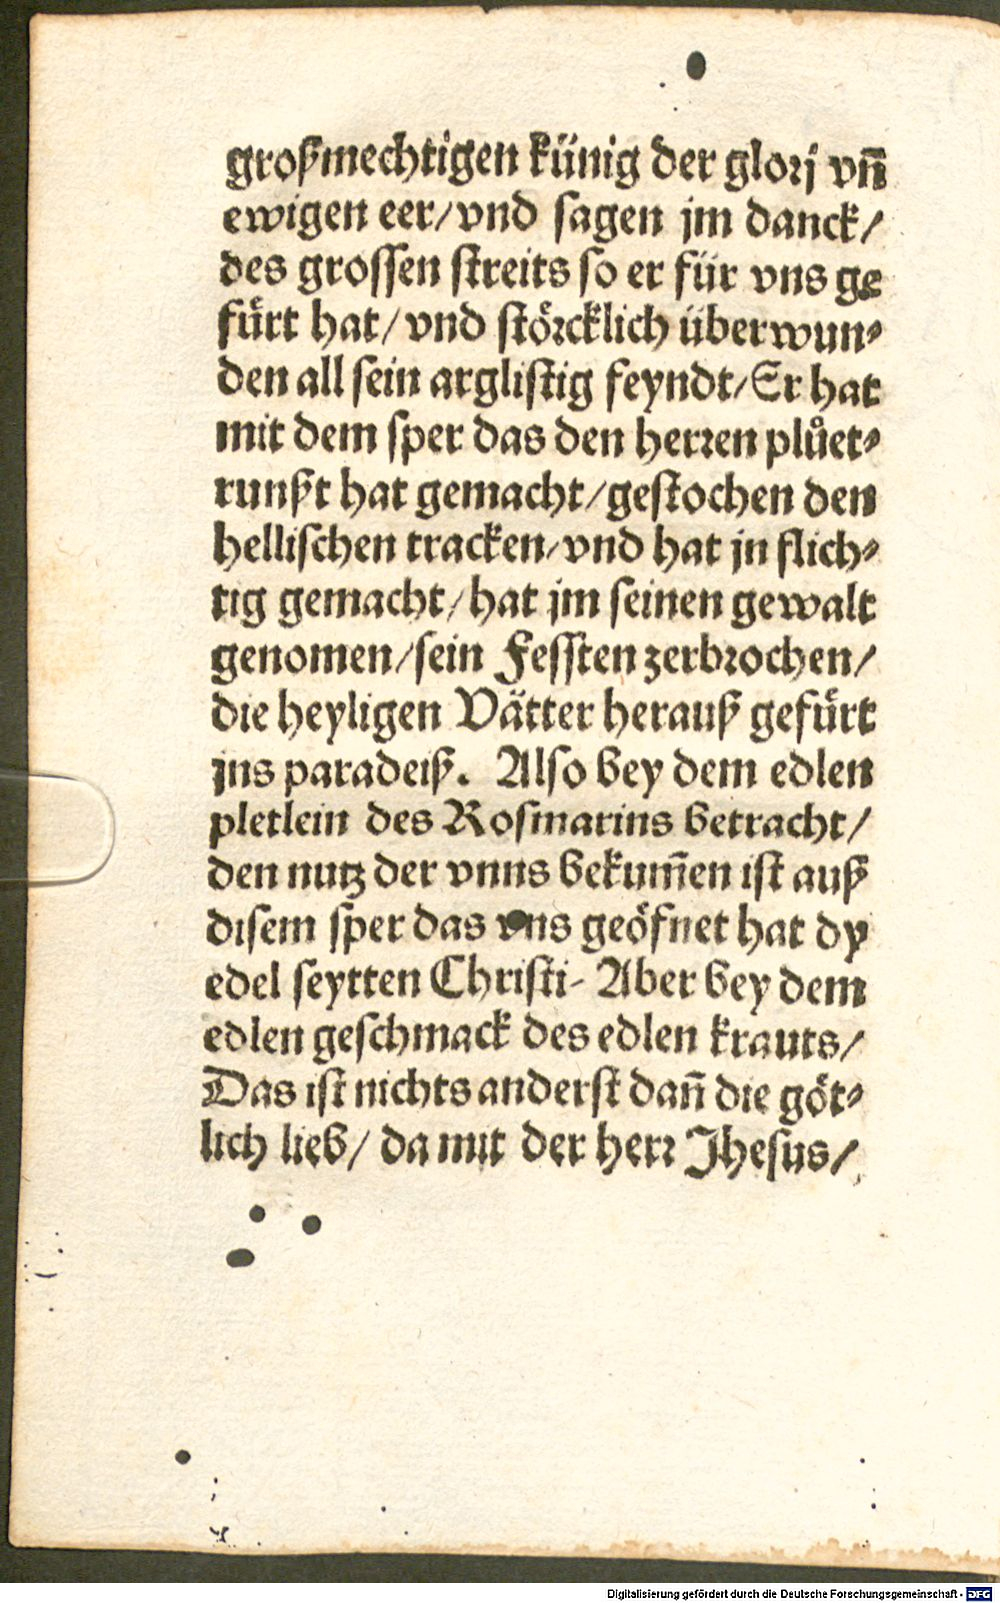 großmechtigen künig der glorj vn̄
ewigen eer/vnd sagen jm danck/
des grossen streits so er für vns ge
fürt hat/vnd störcklich überwun⸗
den all sein arglistig feyndt/Er hat
mit dem sper das den herren plůet⸗
runßt hat gemacht/gestochen den
hellischen tracken/vnd hat jn flich⸗
tig gemacht/hat jm seinen gewalt
genomen/sein Fessten zerbrochen/
die heyligen Vätter herauß gefürt
jns paradeiß. Also bey dem edlen
pletlein des Rosmarins betracht/
den nutz der vnns bekum̄en ist auß
disem sper das vns geöfnet hat dy
edel seytten Christi- Aber bey dem
edlen geschmack des edlen krauts/
Das ist nichts anderst dan̄ die göt⸗
lich lieb/ da mit der herr Jhesus/
Digitalisierung gefördert durch die Deutsche Forschungsgemeinschaft - DFG